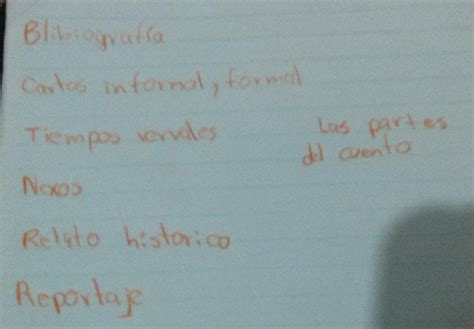 Blibiografía
Cartas informal, formal
Tiempos vervales
Las partes
del cuento
Nexos
Relato historico
Reportaje